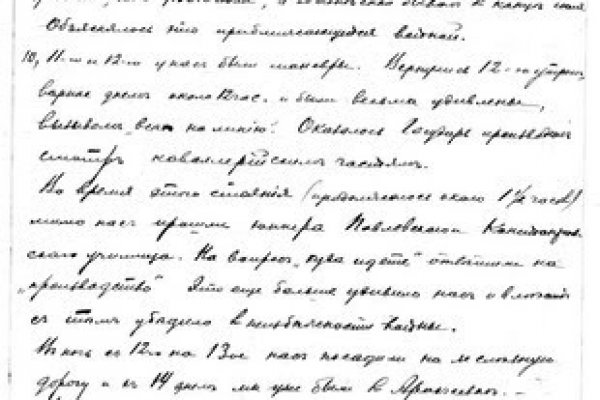 Объяснялось это приближающейся войной.
10, 11-го и 12-го у нас были маневры. Вернулись 12-го утром,
вернее днем около 12 час. и были весьма удивлены,
вызовом „всех на линию". Оказалось Государь производит
смотр кавалерийским частям.
Во время этого стояния (продолжалось около 1½ часов)
мимо нас прошли юнкера Павловского
ского училища. На вопрос „куда идете" ответили на
„производство" Это еще больше удивило нас и
с тем убедило в неизбежности войны.
В ночь с 12-го на 13-ое нас посадили на железную
дорогу и 14 днем мы уже были в